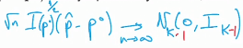 √n I(p°)^{1/2} (p̂ - p°) →_{n→∞} N_{K-1}(0, I_{K-1})